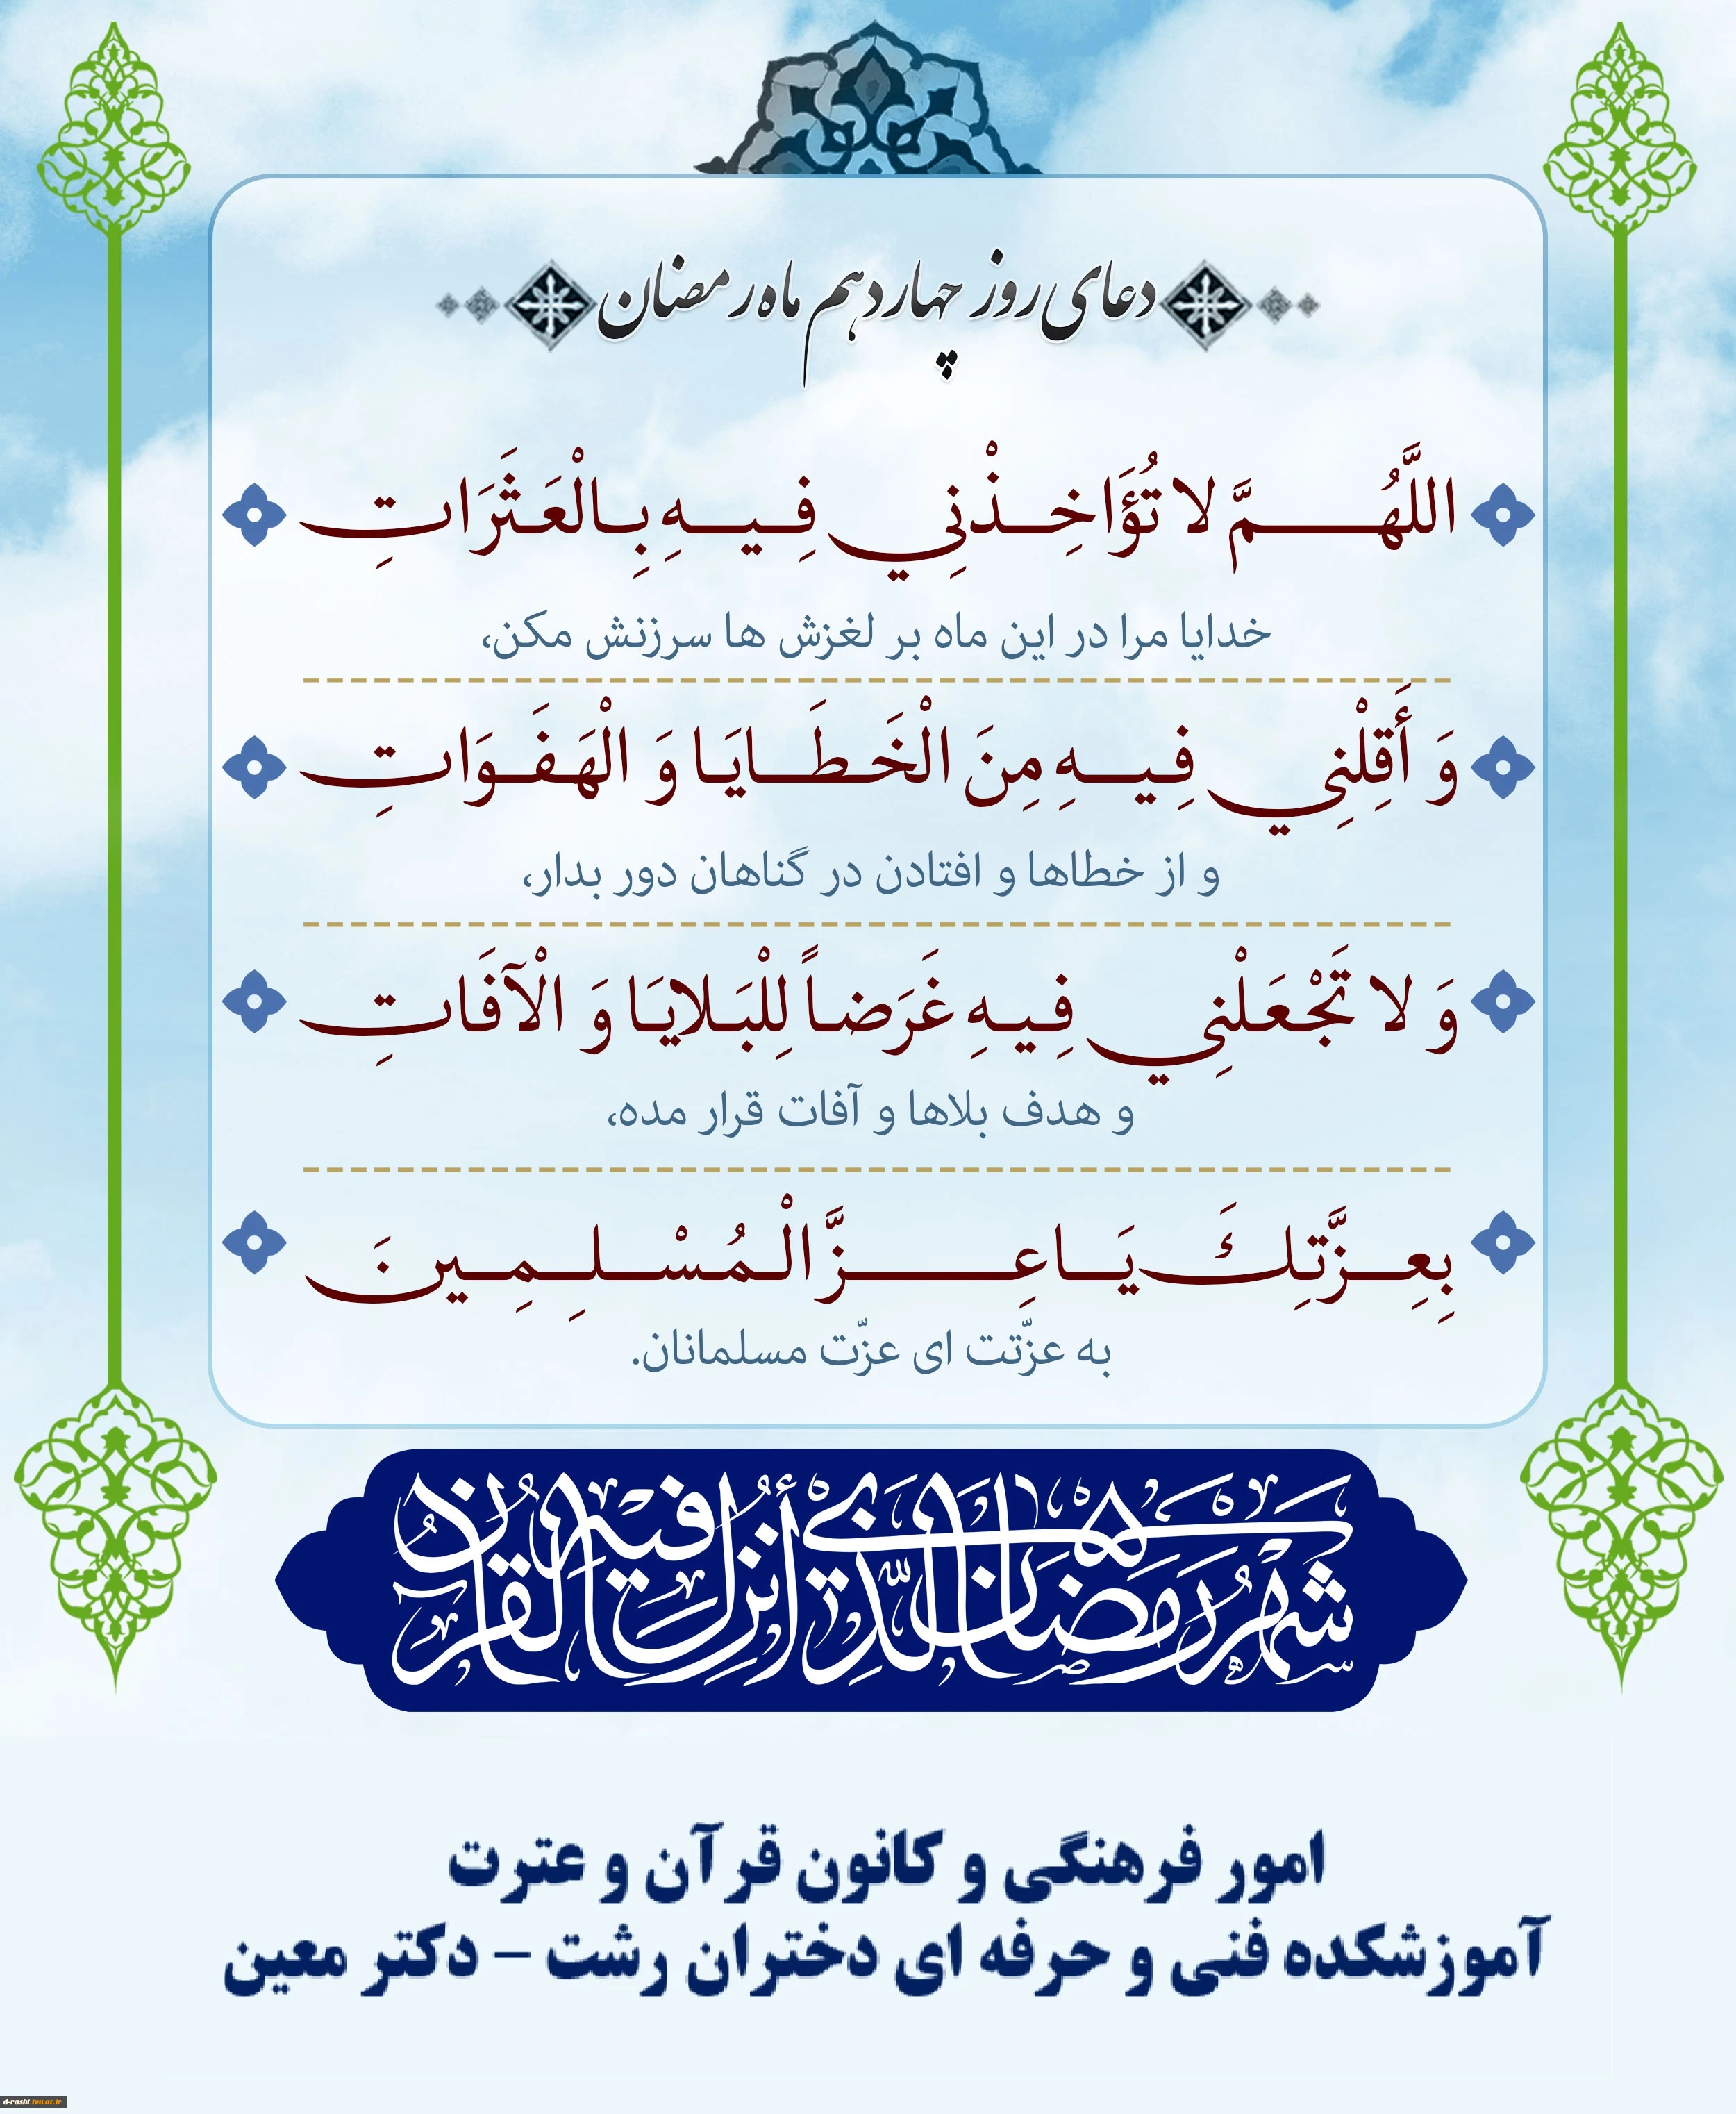 دعای روز چهاردهم ماه رمضان
اللَّهُمَّ لا تُؤَاخِذْنِي فِيهِ بِالْعَثَرَاتِ
خدایا مرا در این ماه بر لغزش ها سرزنش مکن،
وَ أَقِلْنِي فِيهِ مِنَ الْخَطَايَا وَ الْهَفَوَاتِ
و از خطاها و افتادن در گناهان دور بدار،
وَ لا تَجْعَلْنِي فِيهِ غَرَضاً لِلْبَلايَا وَ الْآفَاتِ
و هدف بلاها و آفات قرار مده،
بِعِزَّتِكَ يَا عِزَّ الْمُسْلِمِينَ
به عزّتت ای عزّت مسلمانان.
شهر رمضان الذی أنزل فیه القرآن
امور فرهنگی و کانون قرآن و عترت
آموزشکده فنی و حرفه ای دختران رشت – دکتر معین
d-rasht.tvu.ac.ir